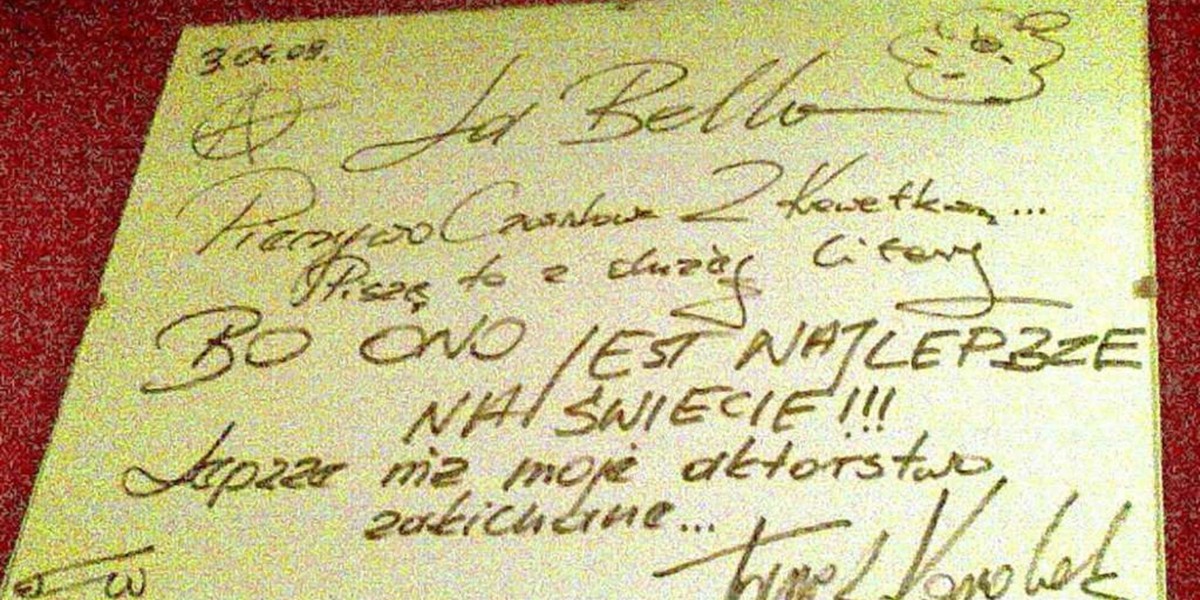 3.04.09.
La Bella
Pierwo Czosnkowe z Krewetkom...
Piszę to z dużej litery
BO ONO JEST NAJLEPSZE
NA ŚWIECIE!!!
Lepsze niż moje aktorstwo
zakichane...